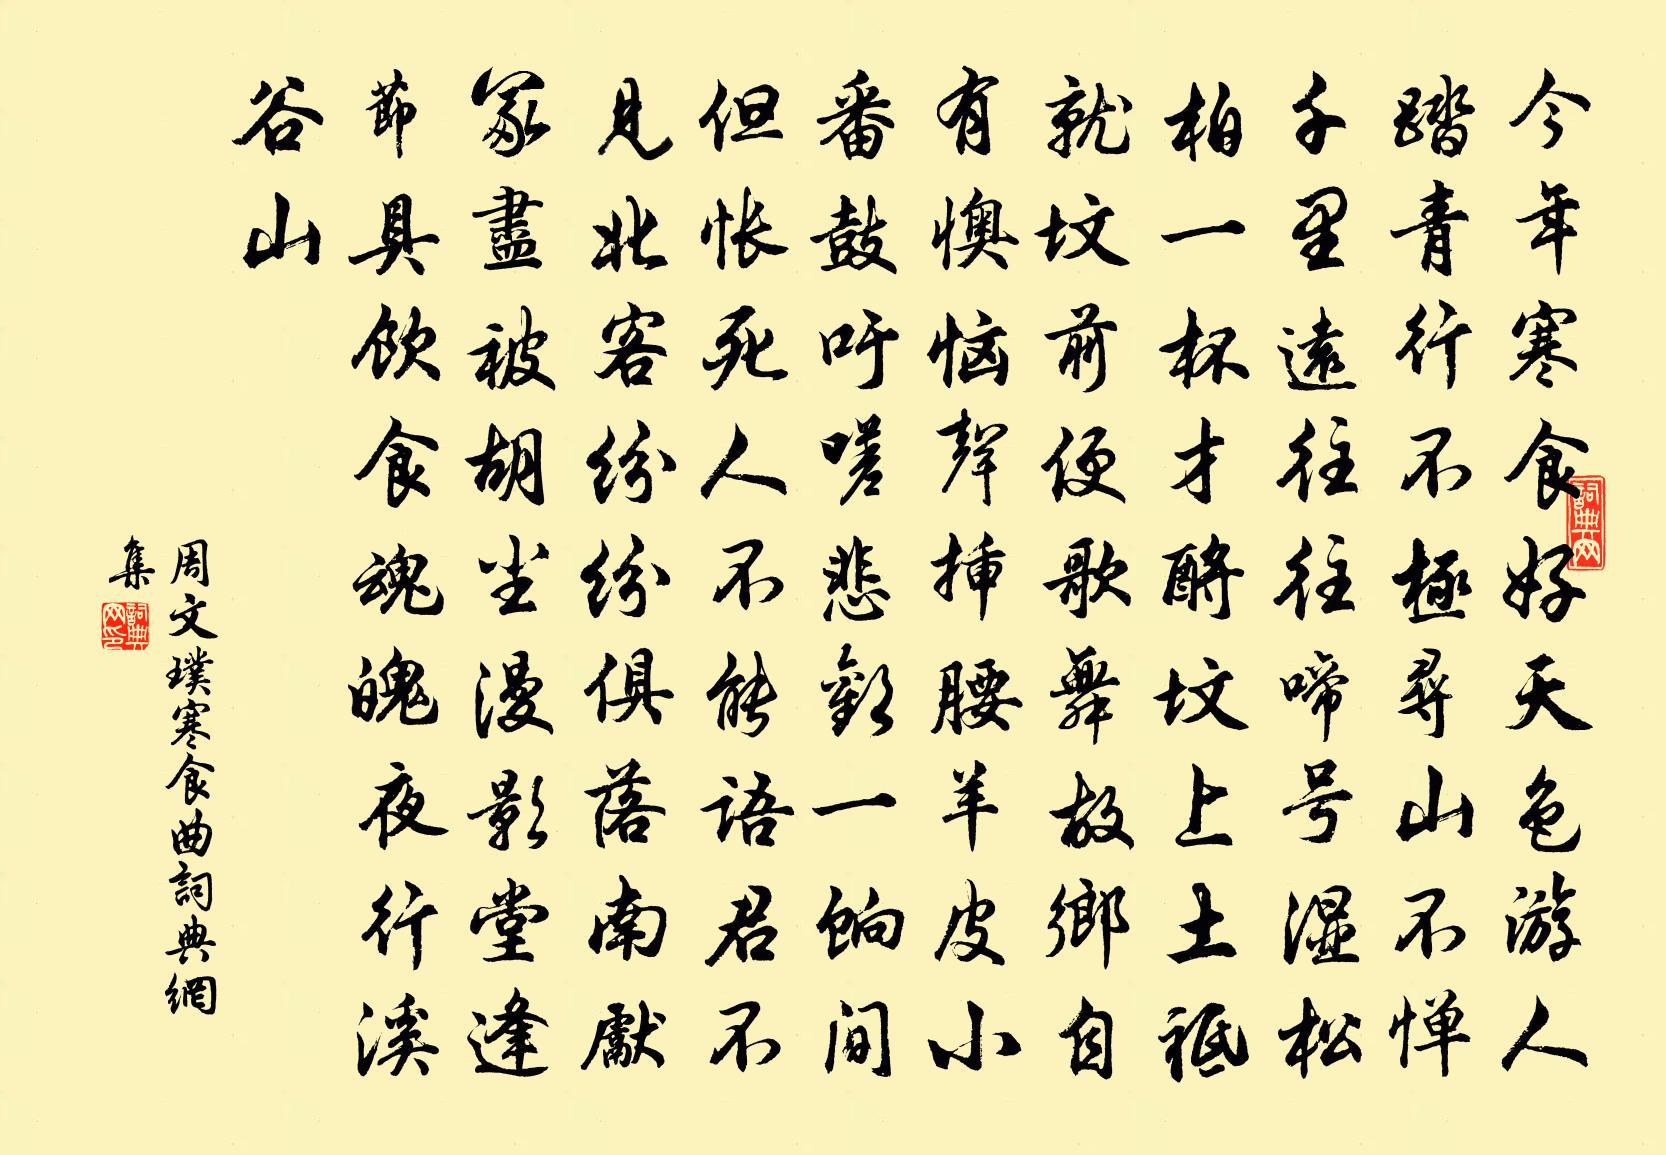 今年寒食好天色游人
踏青行不極尋山不惮
千里遠往往啼号湿松
柏一杯才酹坟上土祗
就坟前便歌舞故鄉自
有懊恼聲挿腰羊皮小
番鼓吁嗟悲歡一餉间
但怅死人不能语君不
見北客纷纷俱落南獻
冢盡被胡尘漫影堂逢
節具飲食魂魄夜行溪
谷山
周文璞寒食曲詞典網
集
詞典网
詞典网印